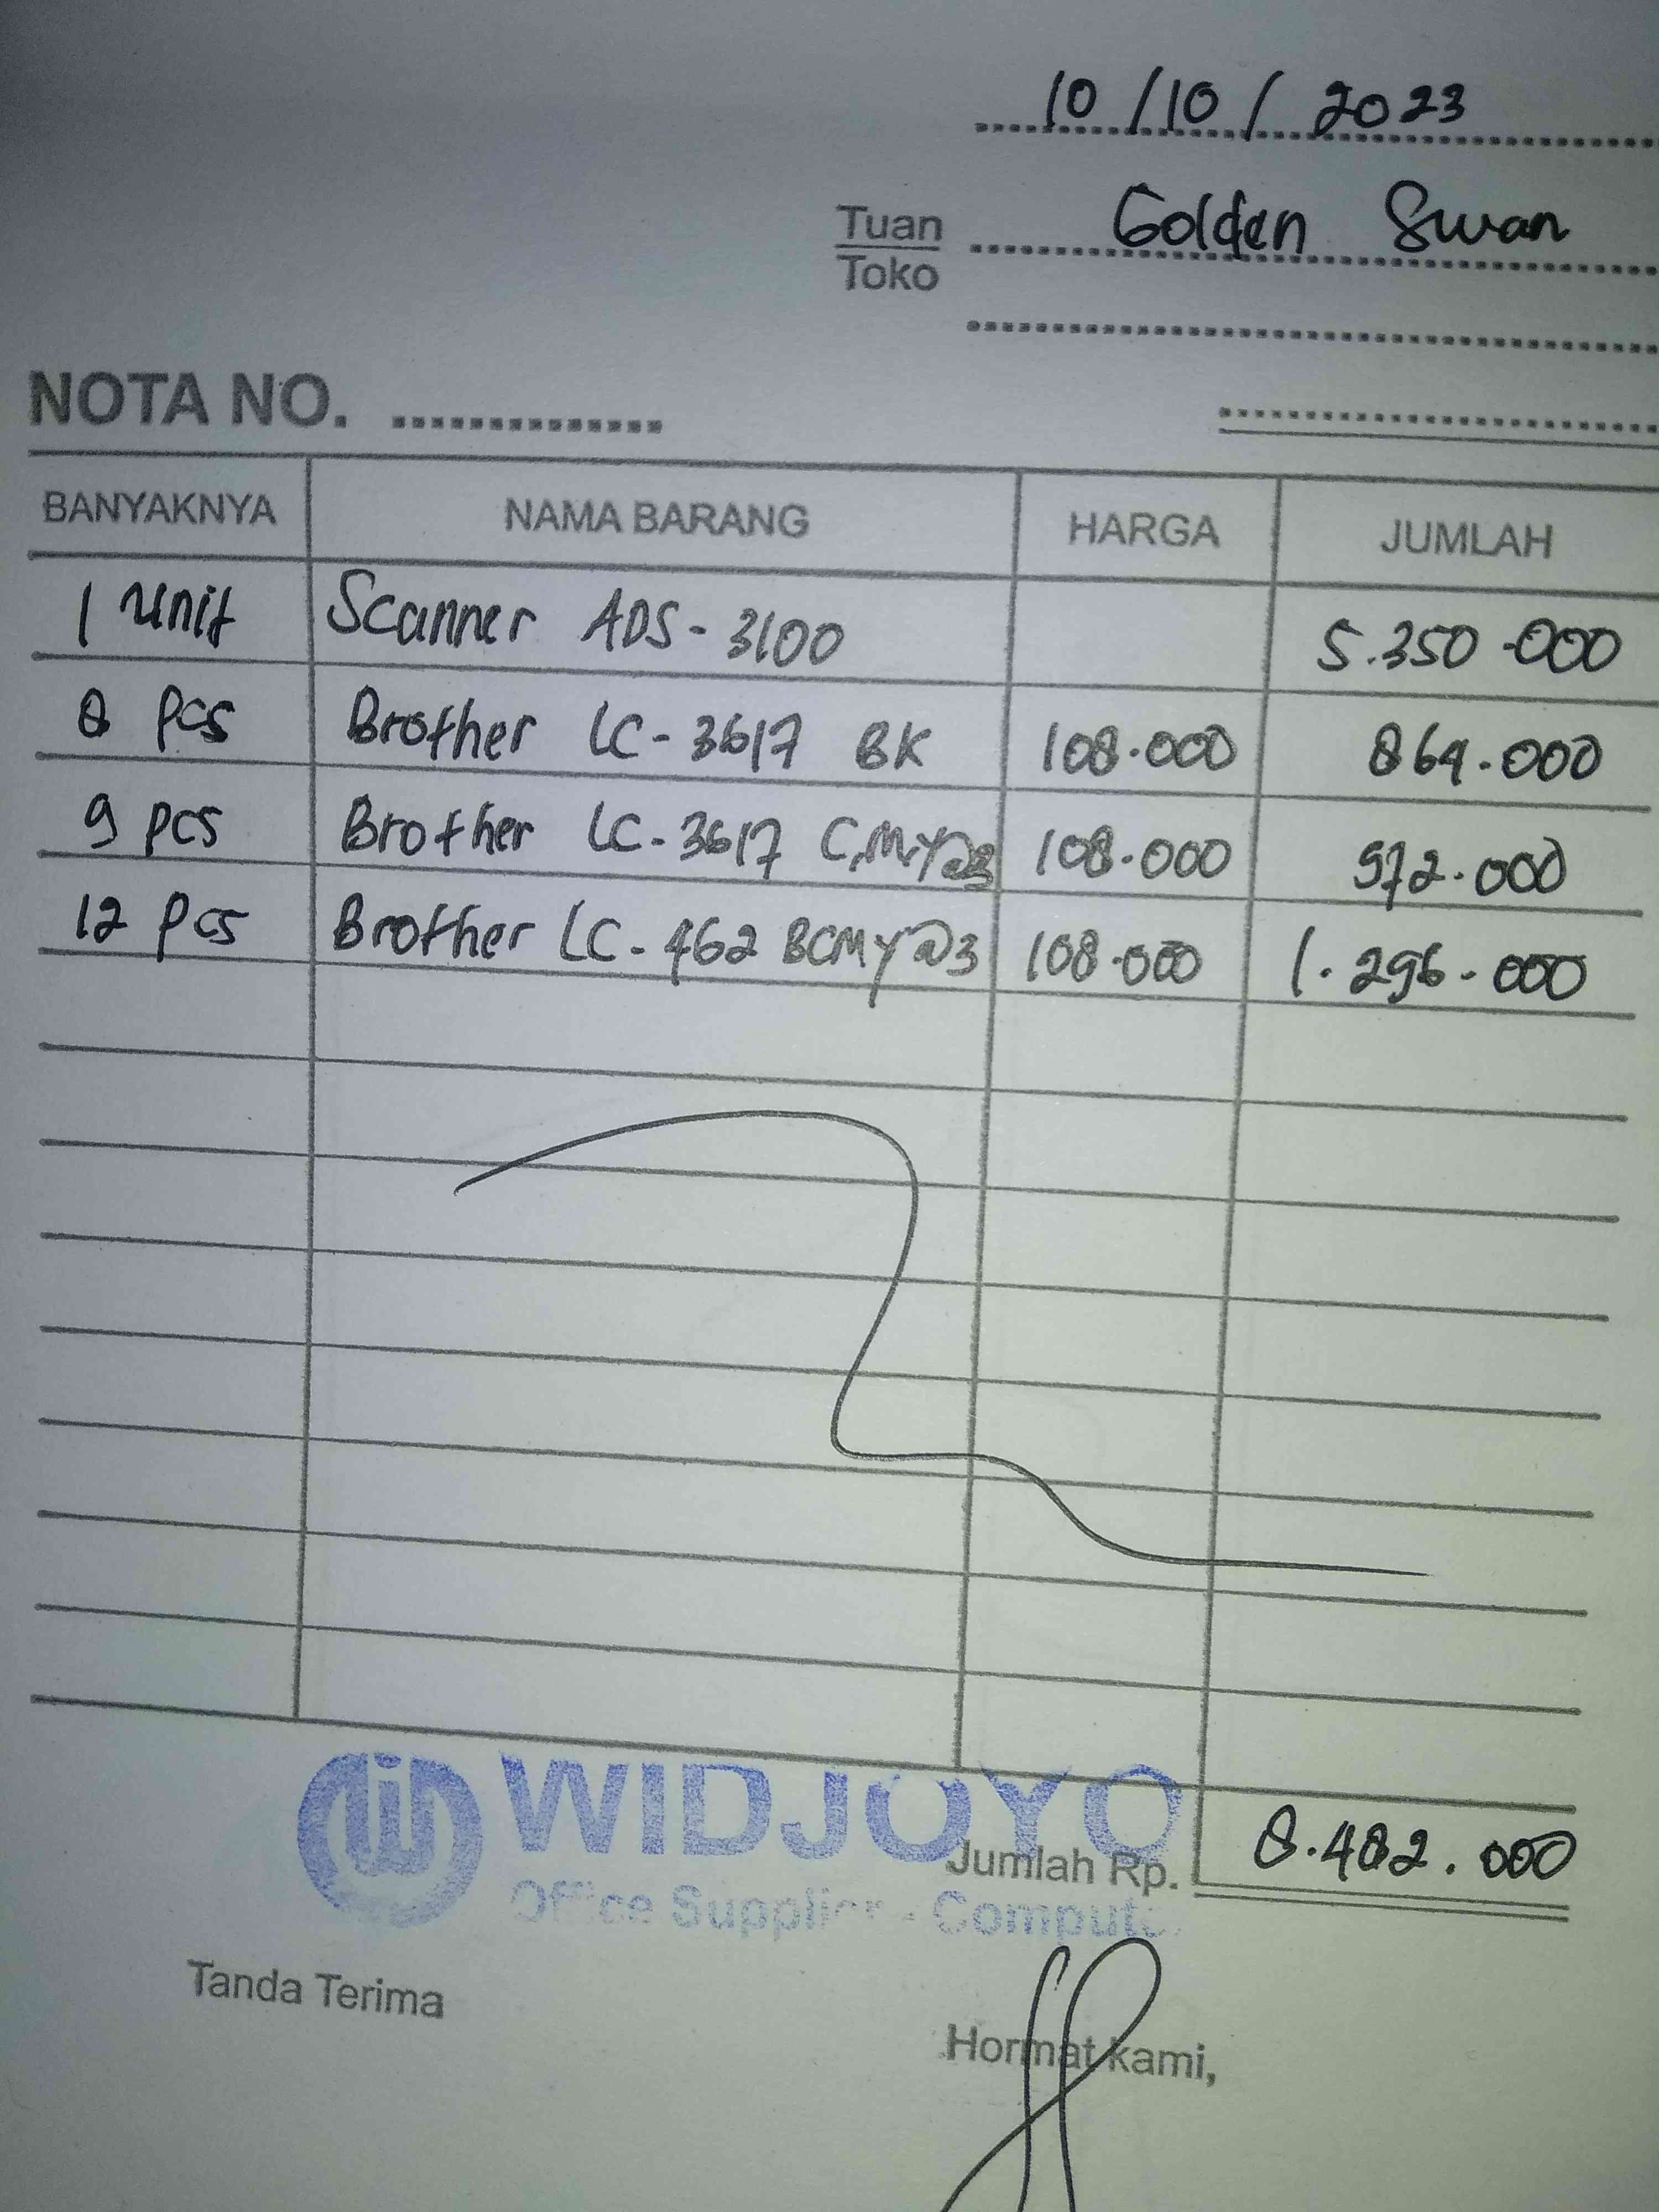 10/10/2023
Tuan Golden Swan
Toko
NOTA NO.
BANYAKNYA NAMA BARANG HARGA JUMLAH
1 Unit Scanner ADS-3100 5.350.000
8 Pcs Brother LC-3617 BK 108.000 864.000
9 pcs Brother LC-3617 C,M,Y@3 108.000 972.000
12 pcs Brother LC-462 BCMY@3 108.000 1.296.000
WIDJOYO
Jumlah Rp. 8.482.000
Office Supplier - Computer
Tanda Terima
Hormat kami,